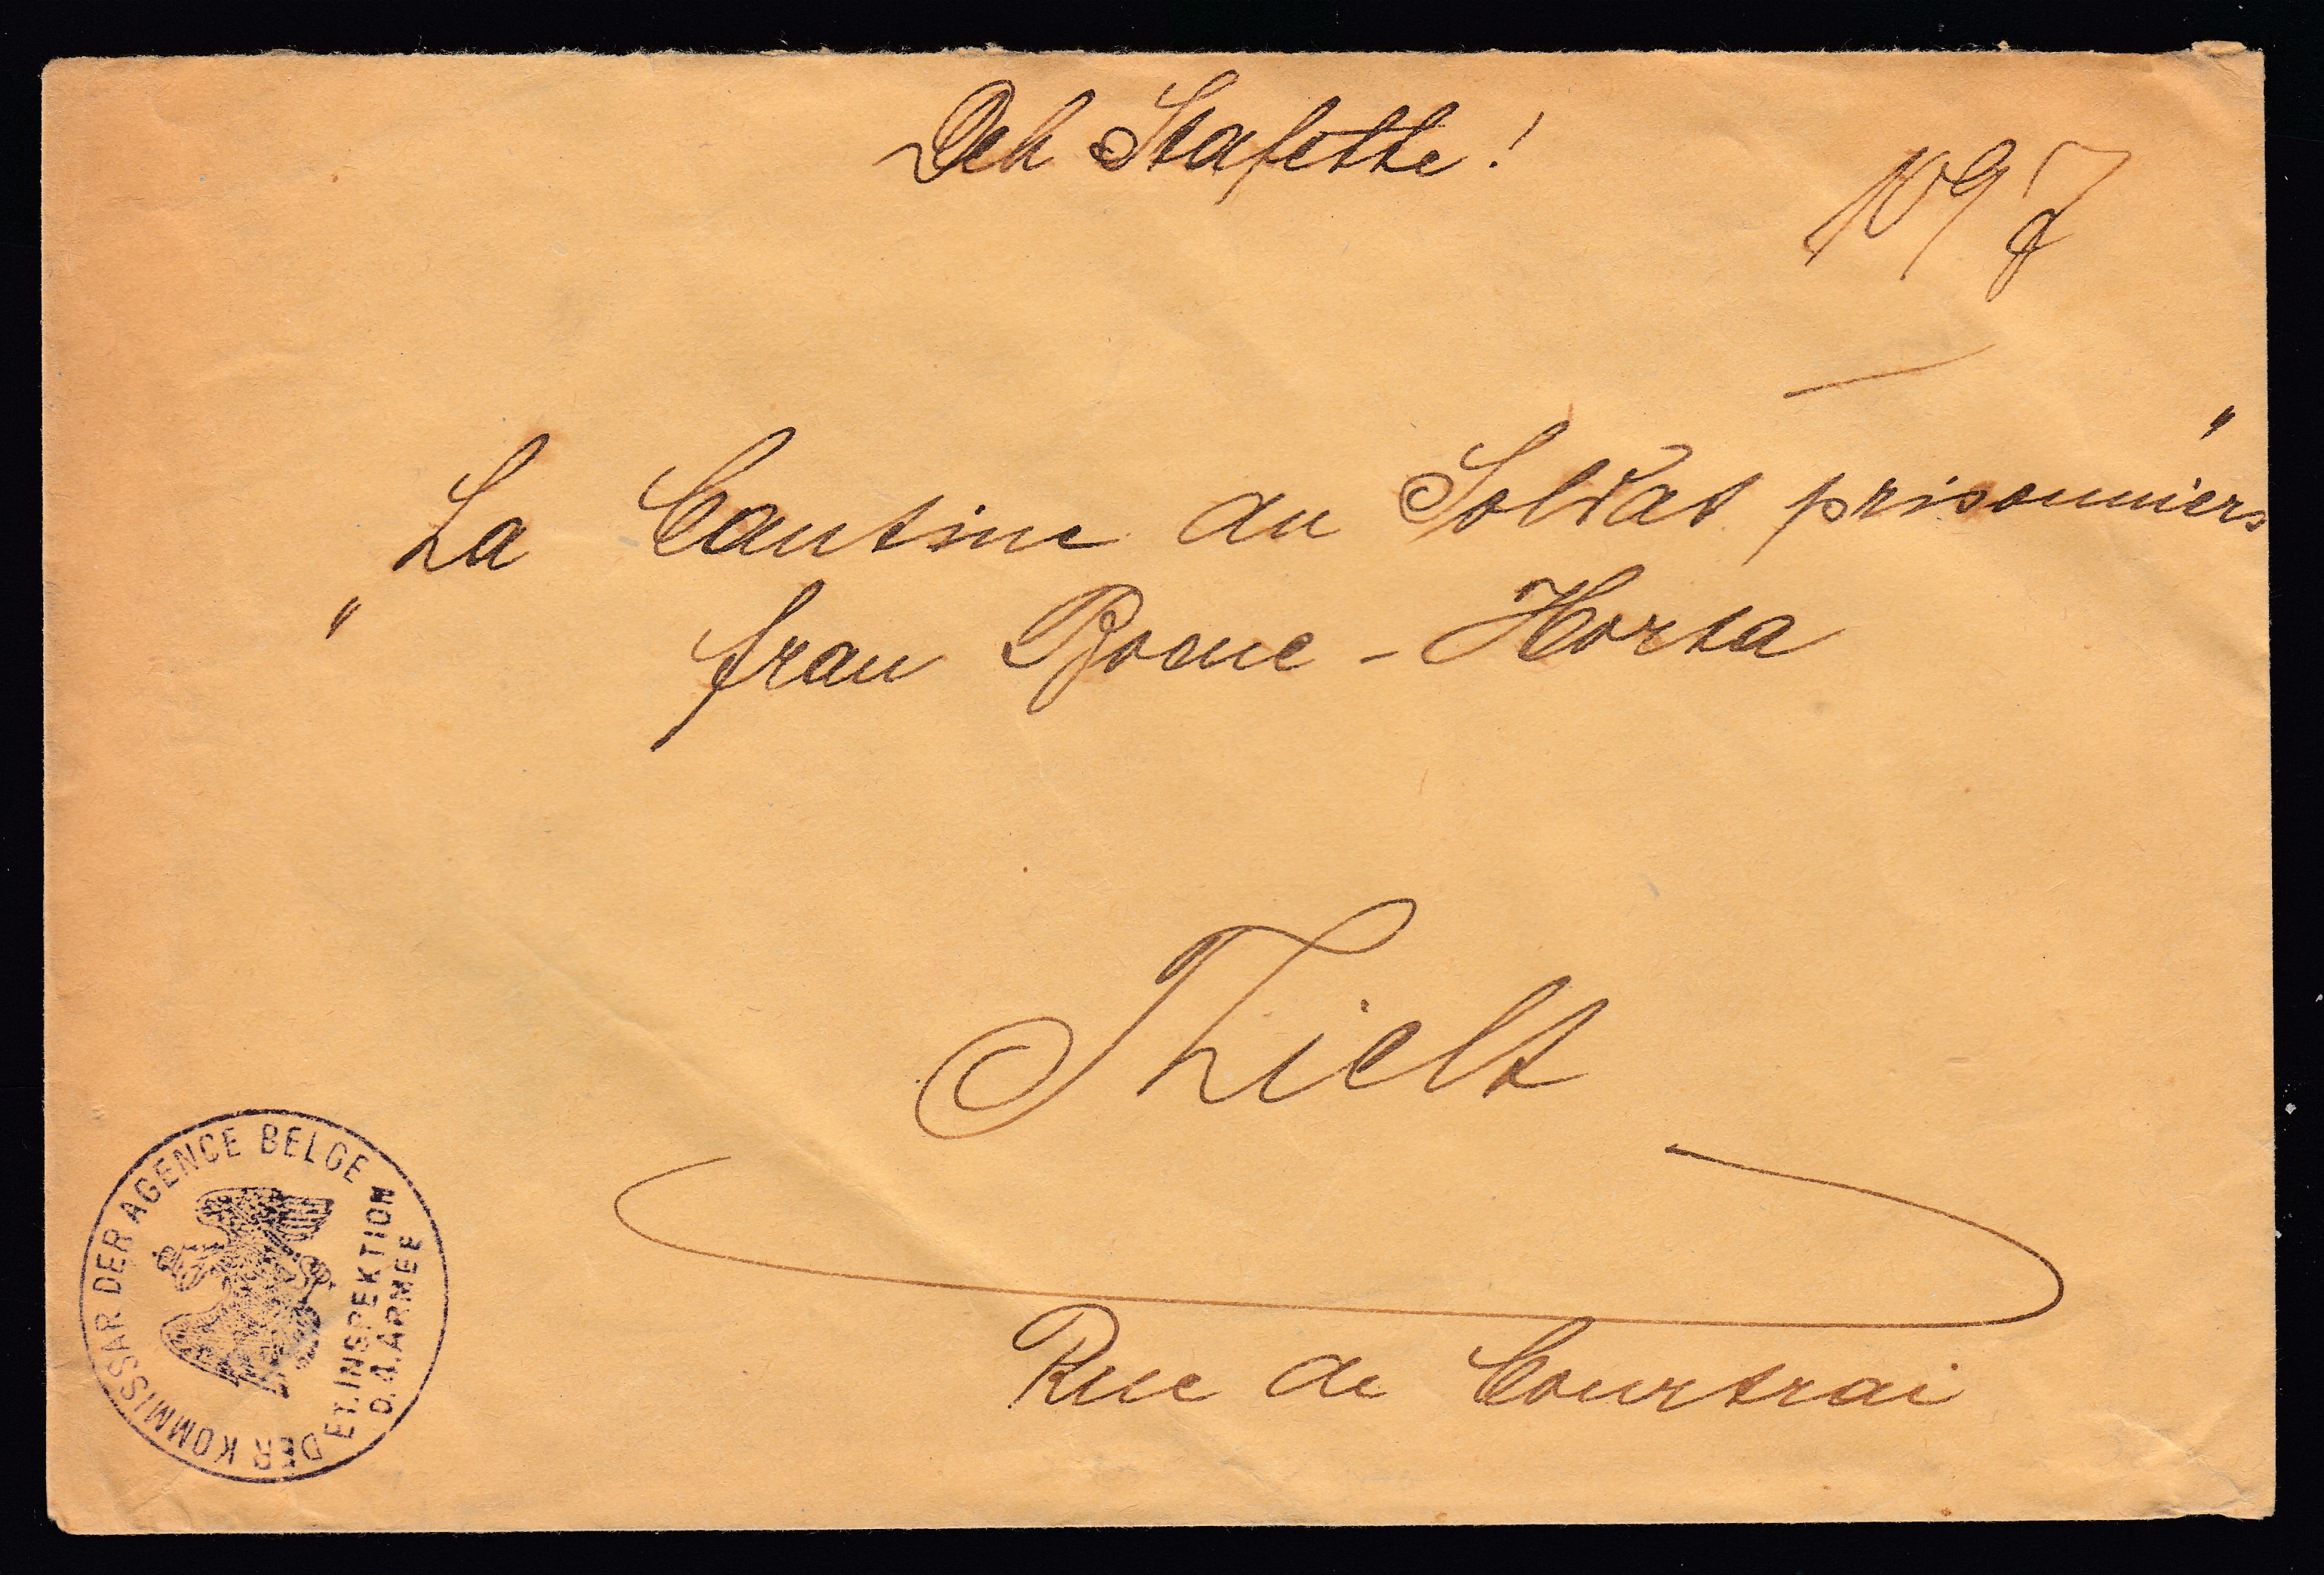 Stafette!
1097
"La Cantine du Soldat prisonniers"
frau Boone - Horta
Thielt
Rue de Courtrai
DER KOMMISSAR DER AGENCE BELGE
ET. INSPEKTION
D. 4. ARMEE